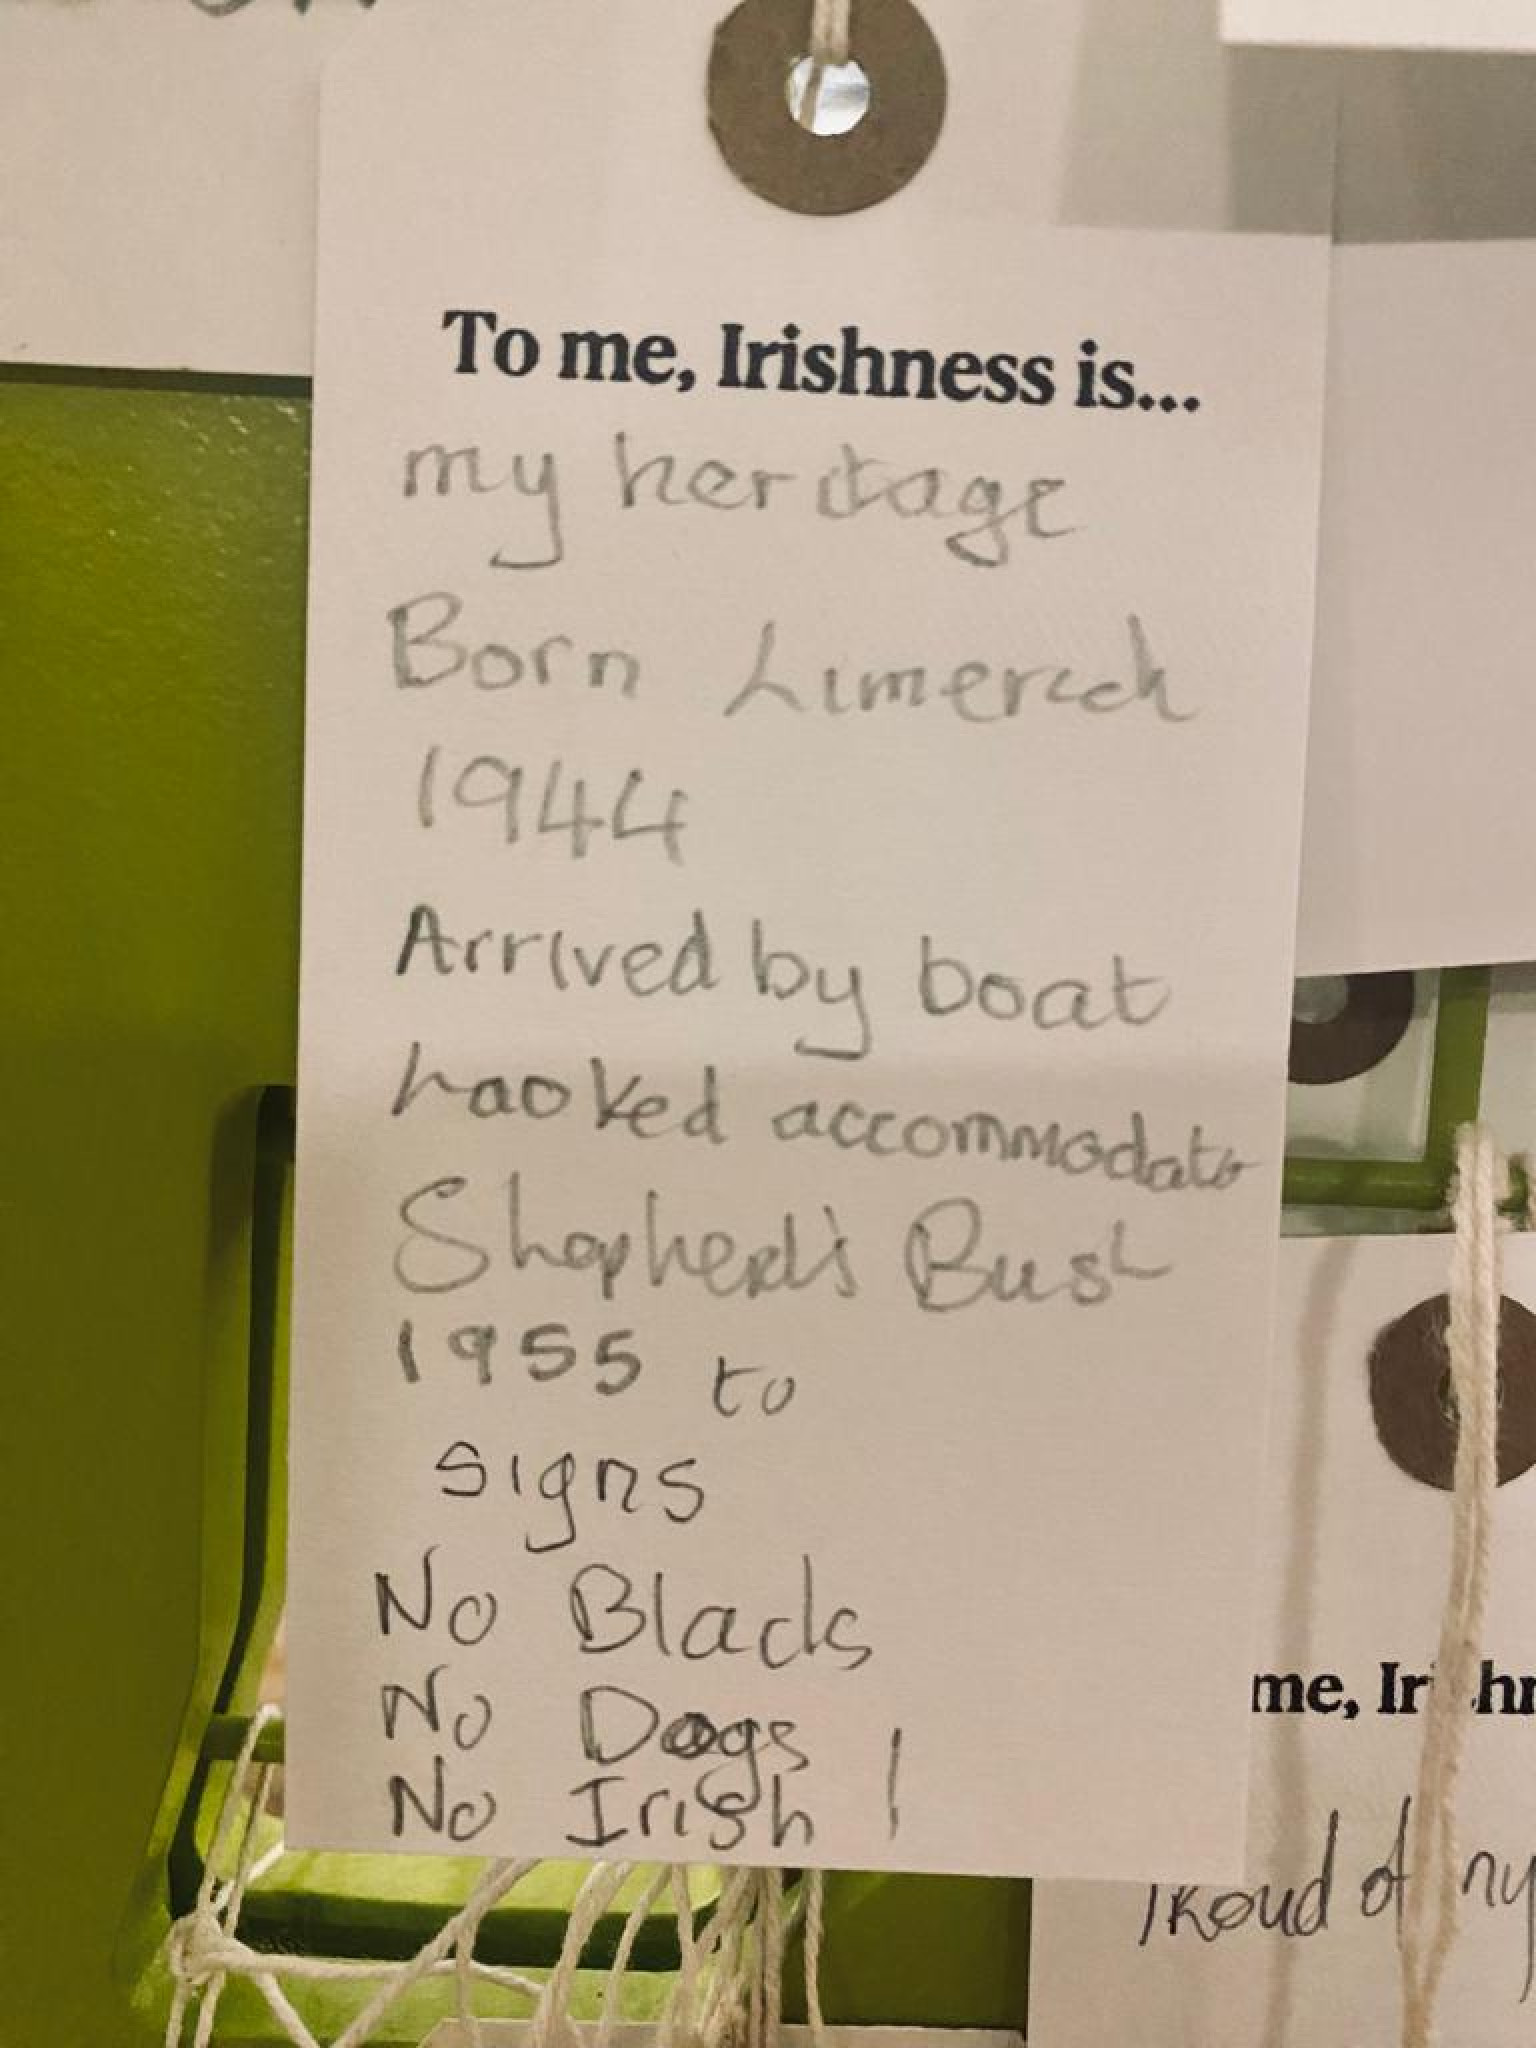 To me, Irishness is...
my heritage
Born Limerick
1944
Arrived by boat
Looked accommodato
Shepherd's Bush
1955 to
signs
No Blacks
No Dogs
No Irish !
me, Irishn
Proud of my